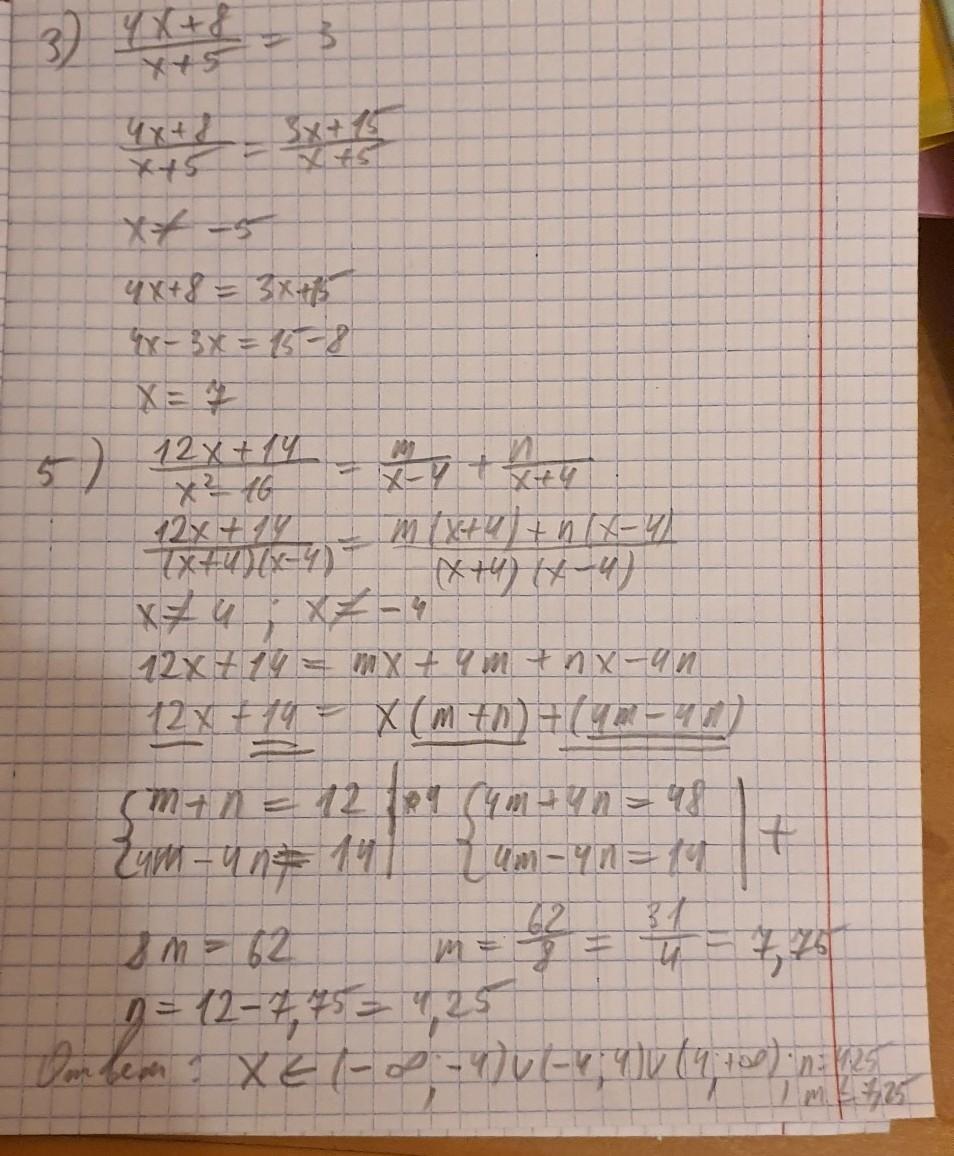 3) (4x+8)/(x+5) = 3
(4x+8)/(x+5) = (3x+15)/(x+5)
x ≠ -5
4x+8 = 3x+15
4x-3x = 15-8
x = 7
5) (12x+14)/(x²-16) = m/(x-4) + n/(x+4)
(12x+14)/((x+4)(x-4)) = (m(x+4)+n(x-4))/((x+4)(x-4))
x ≠ 4 ; x ≠ -4
12x+14 = mx+4m+nx-4n
12x+14 = x(m+n)+(4m-4n)
{m+n = 12 |•4 {4m+4n = 48 | +
{4m-4n = 14 | {4m-4n = 14 |
8m = 62 m = 62/8 = 31/4 = 7,75
n = 12-7,75 = 4,25
Ответ: x ∈ (-∞;-4)∪(-4;4)∪(4;+∞); n=4,25
; m = 7,25